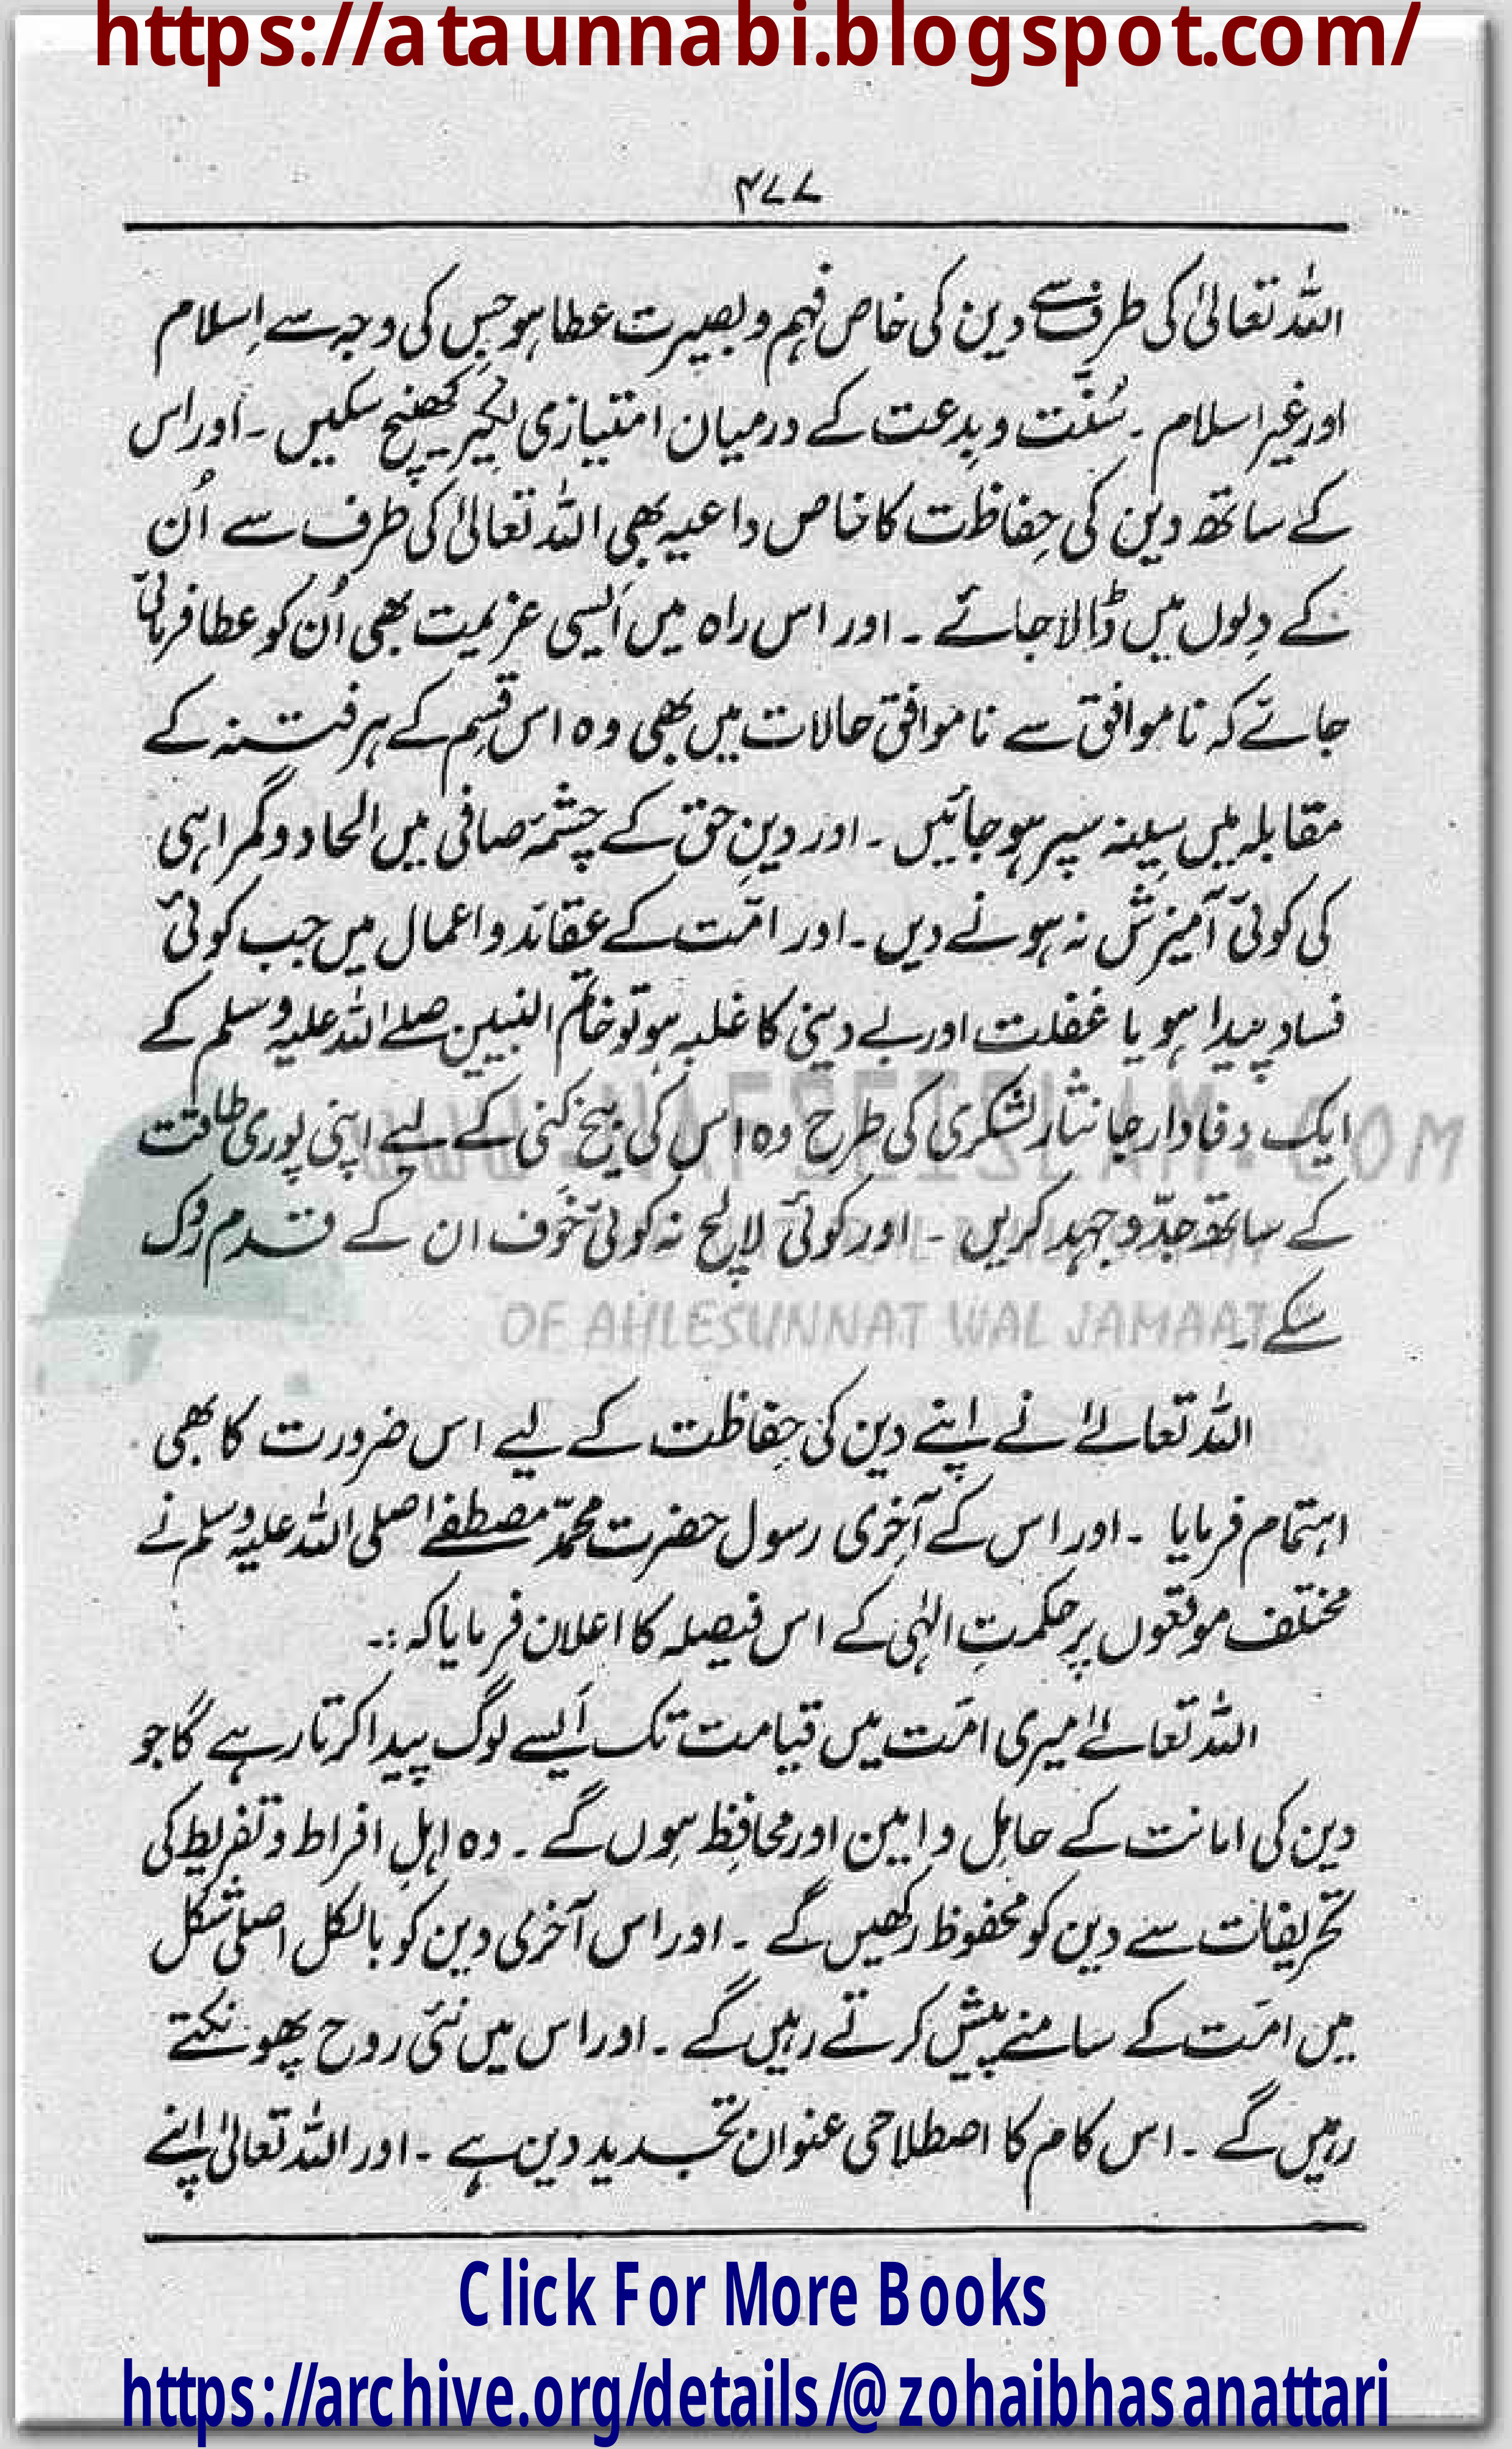 https://ataunnabi.blogspot.com/
۴۷۷
اللہ تعالیٰ کی طرف سے دین کی خاص فہم و بصیرت عطا ہو جس کی وجہ سے اِسلام
اور غیر اسلام ۔ سُنّت و بدعت کے درمیان امتیازی لکیر کھینچ سکیں ۔ اور اس
کے ساتھ دین کی حِفاظت کا خاص داعیہ بھی اللہ تعالیٰ کی طرف سے اُن
کے دِلوں میں ڈالا جائے ۔ اور اس راہ میں اَیسی عزیمت بھی اُن کو عطا فرمائی
جائے کہ ناموافق سے ناموافق حالات میں بھی وہ اس قسِم کے ہر فتنہ کے
مقابلہ میں سِینہ سپر ہو جائیں ۔ اور دینِ حق کے چشمۂ صافی میں الحاد و گمراہی
کی کوئی آمیزش نہ ہونے دیں ۔ اور امّت کے عقائد و اعمال میں جب کوئی
فساد پیدا ہو یا غفلت اور بے دینی کا غلبہ ہو تو خاتم النبیین صلے اللہ علیہ وسلم کے
ایک وفادار جانثار لشکری کی طرح وہ اس کی بیخ کنی کے لیے اپنی پوری طاقت
کے ساتھ جدّ و جہد کریں ۔ اور کوئی لالچ نہ کوئی خَوف ان کے قدم رُوک
سکے ۔
WWW.NAFSEISLAM.COM
OF AHLESUNNAT WAL JAMAAT
اللہ تعالےٰ نے اپنے دین کی حِفاظت کے لیے اس ضرورت کا بھی
اہتمام فرمایا ۔ اور اس کے آخِری رسول حضرت محمّد مصطفےٰ صلی اللہ علیہ وسلم نے
مختلف موقعوں پر حکمتِ الہٰی کے اس فیصلہ کا اعلان فرمایا کہ :۔
اللہ تعالےٰ میری امّت میں قیامت تک اَیسے لوگ پیدا کرتا رہے گا جو
دین کی امانت کے حامِل و امین اور محافِظ ہوں گے ۔ وہ اہلِ افراط و تفریط کی
تحریفات سے دین کو محفوظ رکھیں گے ۔ اور اس آخری دین کو بالکل اصلی شکل
میں امّت کے سامنے پیش کرتے رہیں گے ۔ اور اس میں نئی روح پھونکتے
رہیں گے ۔ اس کام کا اصطلاحی عنوان تجدید دین ہے ۔ اور اللہ تعالیٰ اپنے
Click For More Books
https://archive.org/details/@zohaibhasanattari